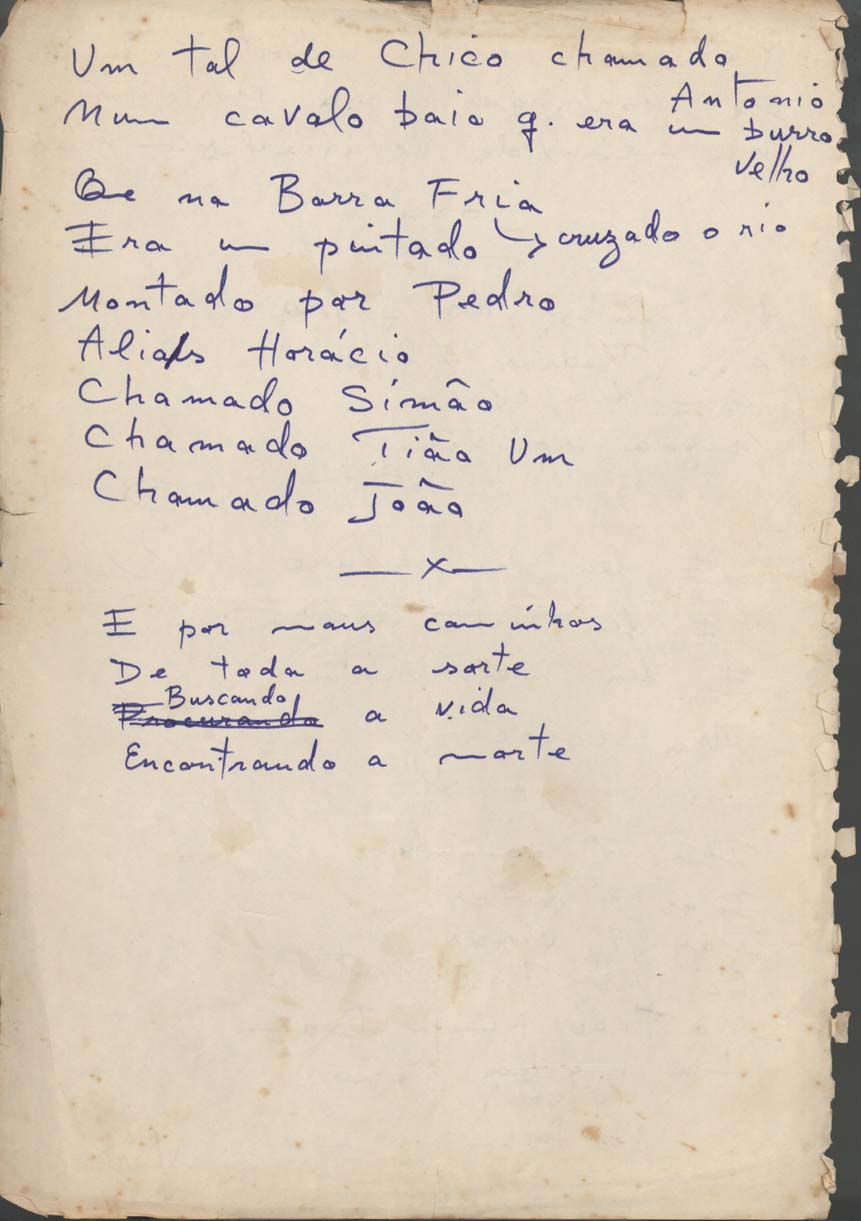 Um tal de Chico chamado Antonio
Num cavalo baio q. era um burro velho
Qe na Barra Fria
Era um pintado → cruzado o rio
Montado por Pedro
Alias Horácio
Chamado Simão
Chamado Tião Um
Chamado João
— x —
E por maus caminhos
De toda a sorte
Buscando
Procurando a vida
Encontrando a morte